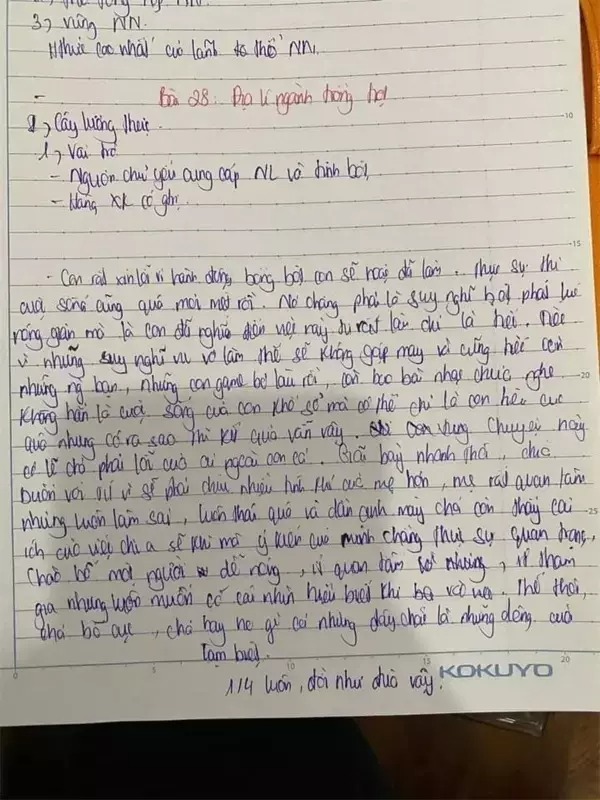 3, vùng NN.
Hthức cao nhất của lãnh thổ NN.
Bài 28: Địa lí ngành trồng trọt
I, Cây lương thực.
1, Vai trò
- Nguồn chủ yếu cung cấp NL và tinh bột,
- Hàng XK có ghi
- Con rất xin lỗi vì hành động bồng bột con sẽ hoặc đã làm. Thực sự thì
cuộc sống cũng quá mỏi mệt rồi. Nó chẳng phải là suy nghĩ bột phát lúc
nóng giận mà là con đã nghĩ đến việc này từ rất lâu chỉ là hơi. Tiếc
vì những suy nghĩ vu vơ làm thế sẽ không gặp may vì cũng hết
những ng bạn, những con game bỏ lâu rồi, còn bao bài nhạc chưa nghe
không hẳn là cuộc sống của con khổ sở mà có thể chỉ là con tiêu cực
quá nhưng có ra sao thì kết quả vẫn vậy. Chuyện này
có lẽ chả phải lỗi của ai ngoài con cả. Giãi bày nhanh thôi, chắc
buồn với vì sẽ phải chịu nhiều tính khí của mẹ hơn, mẹ rất quan tâm
nhưng luôn làm sai, luôn thái quá và dân anh này chả còn thấy cái
ích của việc chia sẻ khi mà ý kiến của mình chẳng thực sự quan trọng,
Chào bố một người dễ nóng, ít quan tâm nhưng, ít tham
gia nhưng luôn muốn có cái nhìn hiểu biết khi Thế thôi,
chả bố cục, chả hay ho gì cả nhưng đây chắc là những dòng cuối
tạm biệt.
1/4 luôn, đời như đùa vậy.
KOKUYO
10
15
20
25
0
5
10
15
20